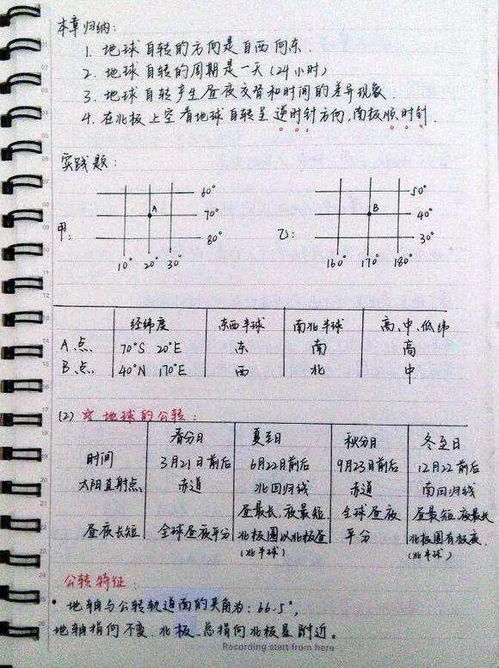 本章归纳:
1. 地球自转的方向是自西向东.
2. 地球自转的周期是一天(24小时)
3. 地球自转产生昼夜交替和时间的差异现象.
4. 在北极上空看地球自转呈逆时针方向,南极顺时针.
实践题:
甲: A 60° 70° 80° 10° 20° 30°
乙: B 50° 40° 30° 160° 170° 180°
经纬度 东西半球 南北半球 高、中、低纬
A点 70°S 20°E 东 南 高
B点 40°N 170°E 西 北 中
(2) 地球的公转:
春分日 夏至日 秋分日 冬至日
时间 3月21日前后 6月22日前后 9月23日前后 12月22前后
太阳直射点 赤道 北回归线 赤道 南回归线
昼夜长短 全球昼夜平分 昼最长.夜最短. 北极圈以北极昼 (北半球) 全球昼夜平分 昼最短.夜最长 北极圈有极夜. (北半球)
公转特征:
· 地轴与公转轨道面的夹角为:66.5°,
地轴指向不变.北极.总指向北极星附近。
Recording start from here